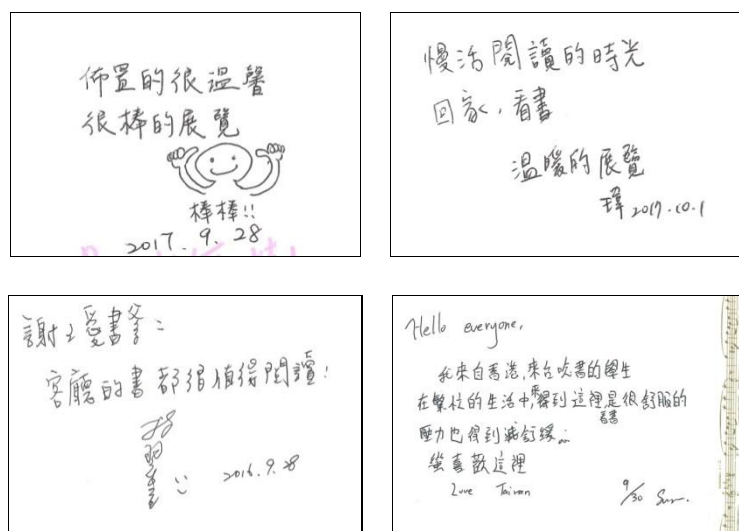 佈置的很溫馨
很棒的展覽
棒棒!!
2017. 9. 28
慢活閱讀的時光
回家,看書
溫暖的展覽
2017.10.1
謝
客廳的書都很值得閱讀!
2016.9.28
Hello everyone,
我來自香港,來台唸書的學生
在繁忙的生活中,來到這裡看書是很舒服的
壓力也得到減舒緩
蠻喜歡這裡
Love Taiwan
9/30